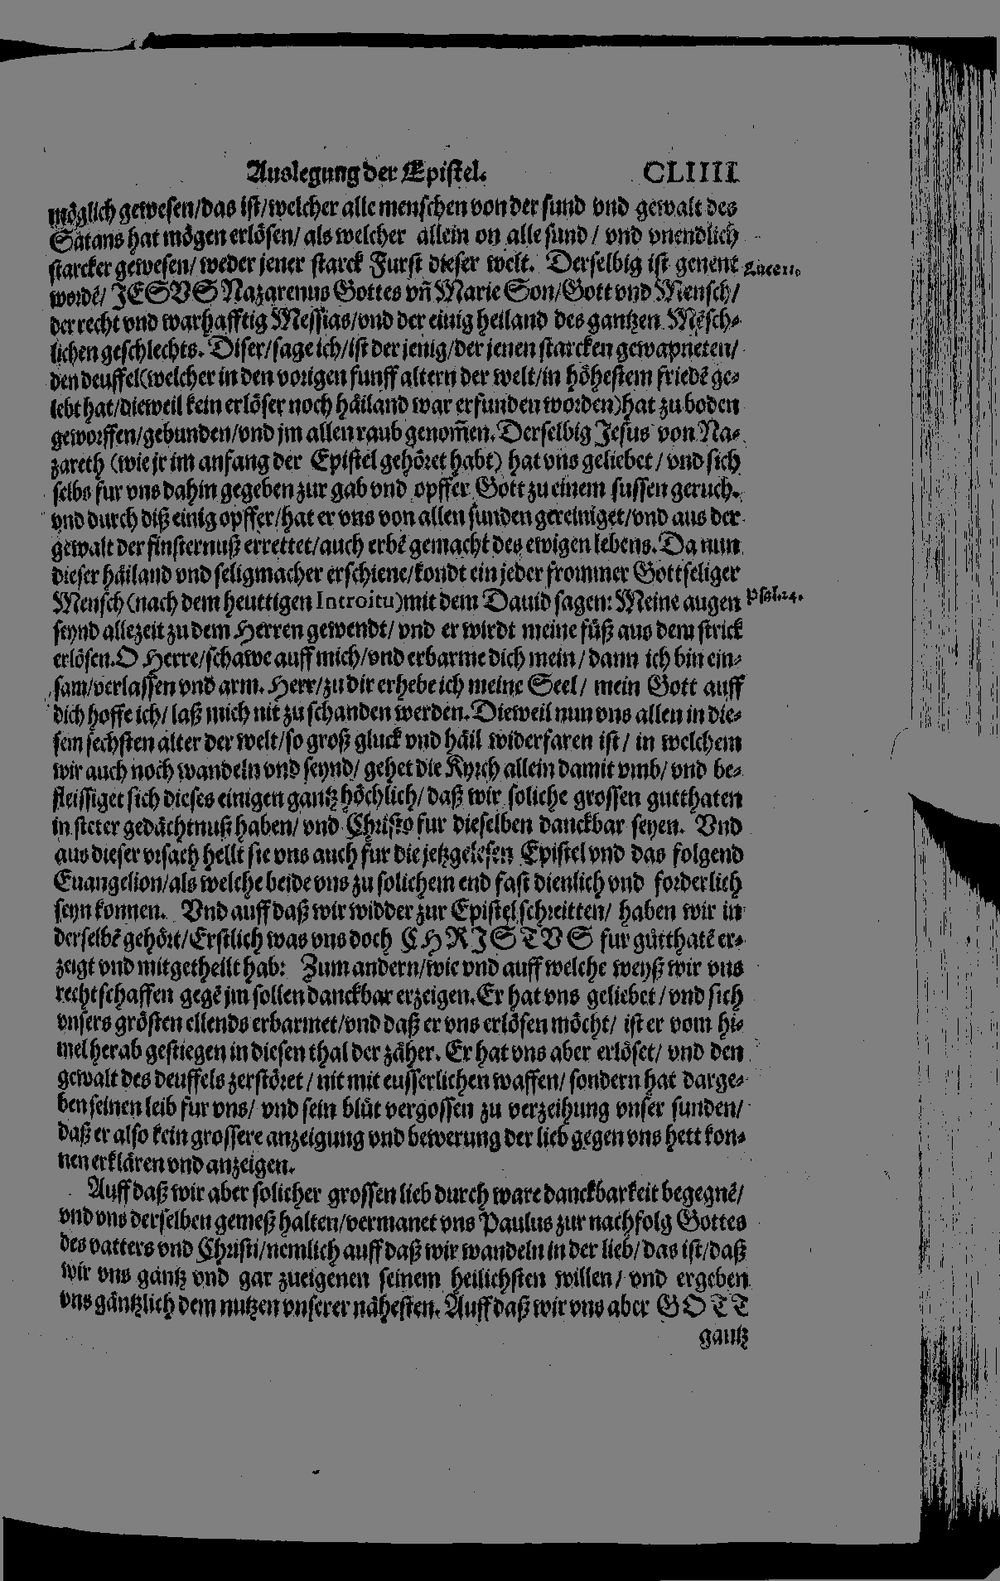 Auslegung der Epistel. CLIIII
möglich gewesen/das ist/welcher alle menschen von der sund vnd gewalt des
Satans hat mögen erlösen/ als welcher allein on alle sund / vnd vnendlich
starcker gewesen/ weder jener starck Furst dieser welt. Derselbig ist genent
wordē/ JESVS Nazarenus Gottes vñ Marie Son/Gott vnd Mensch/
der recht vnd warhafftig Messias/vnd der einig heiland des gantzen Mēsch-
lichen geschlechts. Diser/sage ich/ist der jenig/der jenen starcken gewapneten/
den deuffel(welcher in den vorigen funff altern der welt/in höhestem friedē ge-
lebt hat/dieweil kein erlöser noch häiland war erfunden worden)hat zu boden
geworffen/gebunden/vnd jm allen raub genom̄en. Derselbig Jesus von Na-
zareth (wie jr im anfang der Epistel gehöret habt) hat vns geliebet / vnd sich
selbs fur vns dahin gegeben zur gab vnd opffer Gott zu einem sussen geruch.
vnd durch diß einig opffer/hat er vns von allen sunden gereiniget/vnd aus der
gewalt der finsternuß errettet/auch erbē gemacht des ewigen lebens. Da nun
dieser häiland vnd seligmacher erschiene/kondt ein jeder frommer Gottseliger
Mensch (nach dem heuttigen Introitu)mit dem Dauid sagen: Meine augen
seynd allezeit zu dem Herren gewendt/ vnd er wirdt meine füß aus dem strick
erlösen.O Herre/schawe auff mich/vnd erbarme dich mein / dann ich bin ein-
sam/verlassen vnd arm. Herr/zu dir erhebe ich meine Seel / mein Gott auff
dich hoffe ich/ laß mich nit zu schanden werden. Dieweil nun vns allen in die-
sem sechsten alter der welt/so groß gluck vnd häil widerfaren ist / in welchem
wir auch noch wandeln vnd seynd/ gehet die Kyrch allein damit vmb/ vnd be-
fleissiget sich dieses einigen gantz höchlich/ daß wir soliche grossen gutthaten
in steter gedächtnuß haben/ vnd Christo fur dieselben danckbar seyen. Vnd
aus dieser vrsach hellt sie vns auch fur die jetzgelesen Epistel vnd das folgend
Euangelion/als welche beide vns zu solichem end fast dienlich vnd forderlich
seyn konnen. Vnd auff daß wir widder zur Epistel schreitten/ haben wir in
derselbē gehört/Erstlich was vns doch CHRISTVS fur gutthatē er-
zeigt vnd mitgetheilt hab: Zum andern/wie vnd auff welche weyß wir vns
rechtschaffen gegē jm sollen danckbar erzeigen. Er hat vns geliebet / vnd sich
vnsers grösten ellends erbarmet/vnd daß er vns erlösen möcht/ ist er vom hi-
mel herab gestiegen in diesen thal der zäher. Er hat vns aber erlöset/ vnd den
gewalt des deuffels zerstöret / nit mit eusserlichen waffen/ sondern hat darge-
ben seinen leib fur vns/ vnd sein blut vergossen zu verzeihung vnser sunden/
daß er also kein grossere anzeigung vnd bewerung der lieb gegen vns hett kon-
nen erklären vnd anzeigen.
Auff daß wir aber solicher grossen lieb durch ware danckbarkeit begegnē/
vnd vns derselben gemeß halten/vermanet vns Paulus zur nachfolg Gottes
des vatters vnd Christi/nemlich auff daß wir wandeln in der lieb/ das ist/daß
wir vns gantz vnd gar zueigenen seinem heilichsten willen / vnd ergeben
vns gäntzlich dem nutzen vnserer nähesten. Auff daß wir vns aber GOTT
gantz